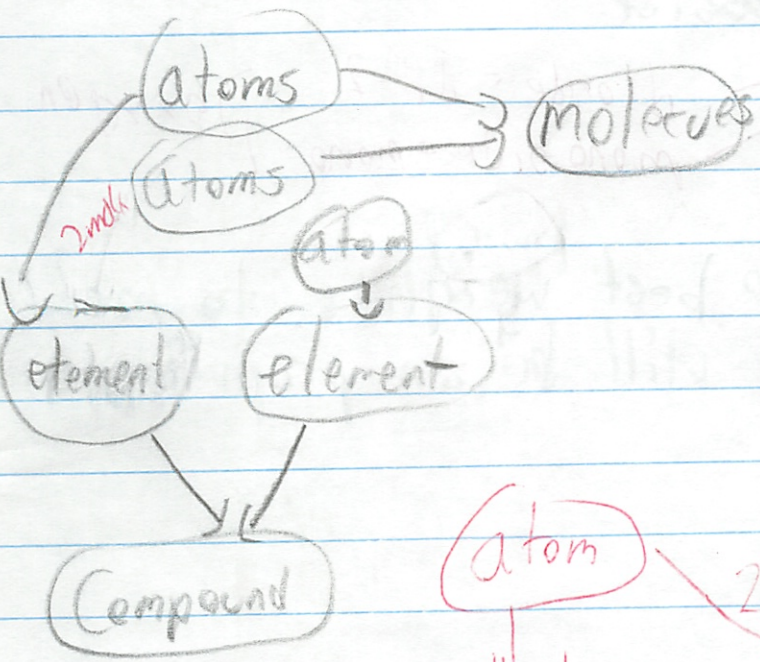 atoms
molecues
atoms
atom
element
element
Compound
atom
2